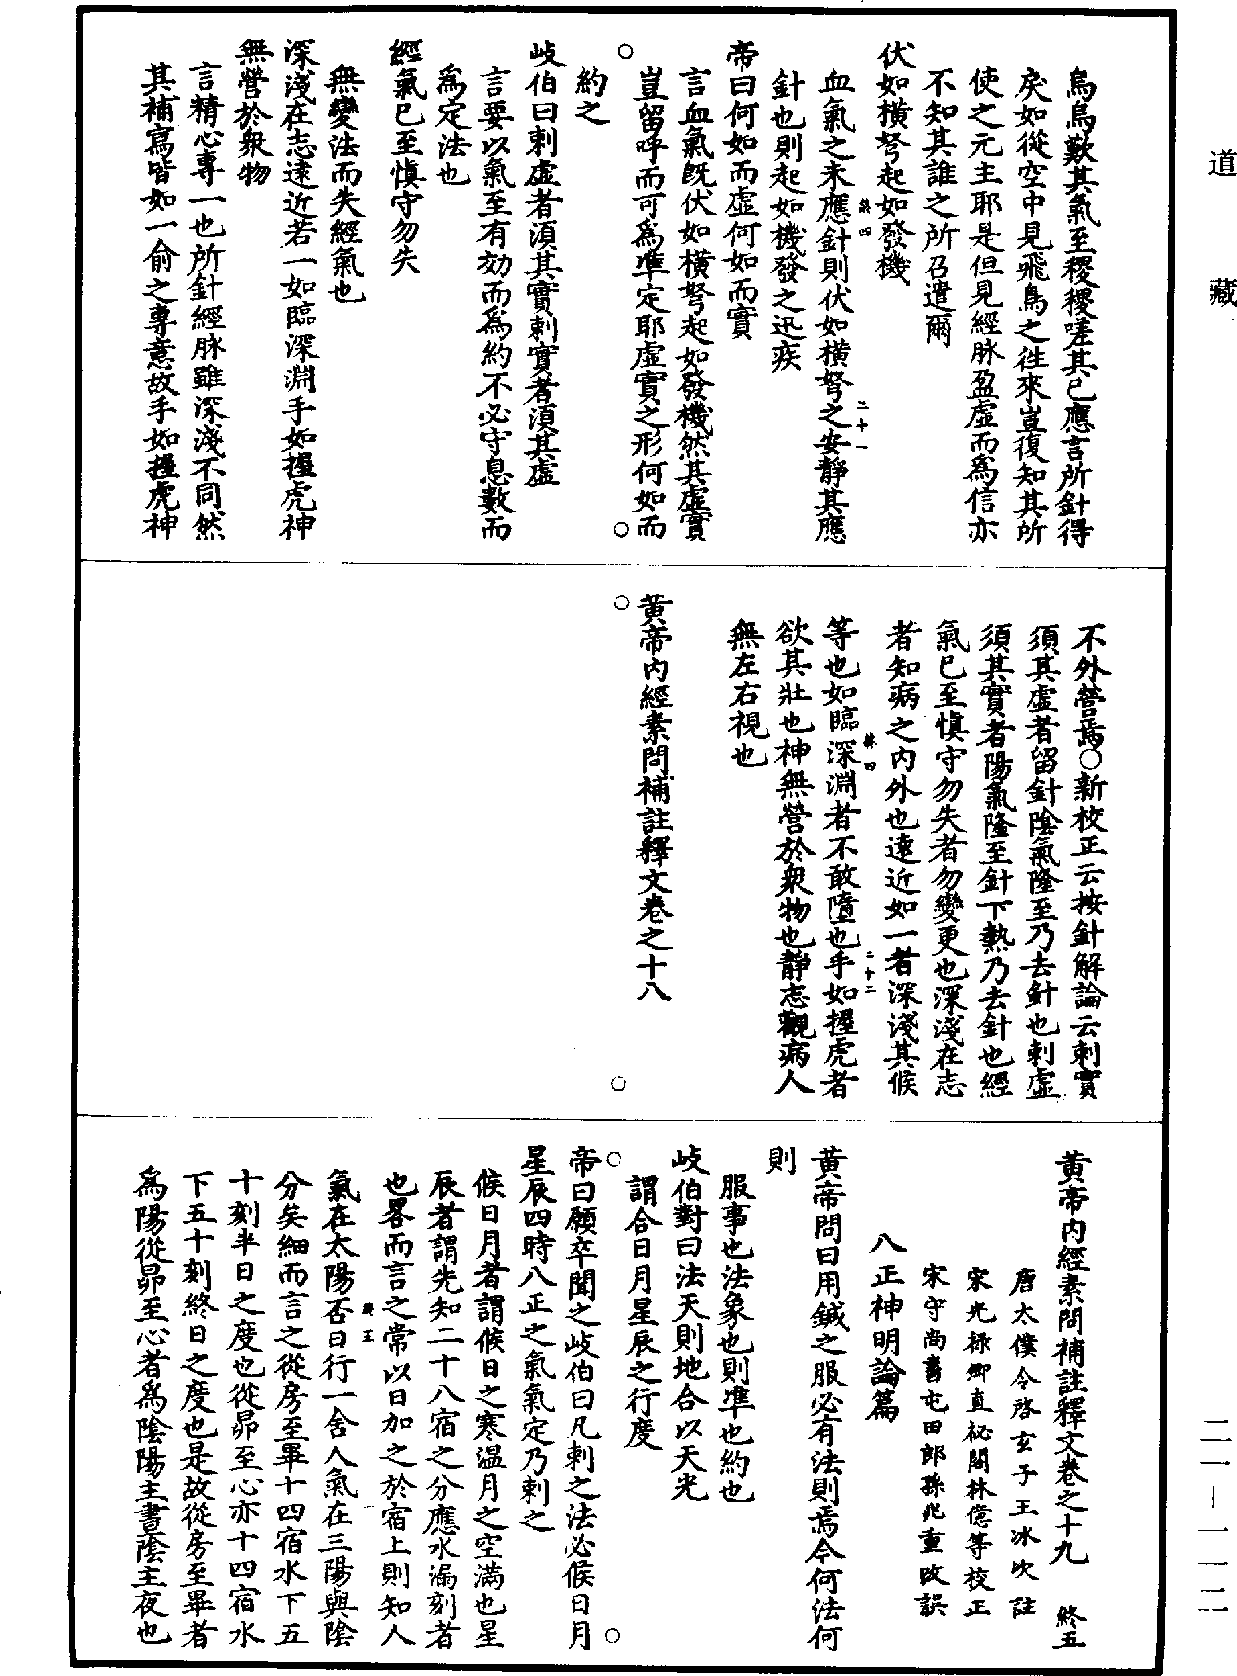 道藏
烏烏歎其氣至稷稷嗟其已應言所針得
失如從空中見飛鳥之徃來豈復知其所
使之元主耶是但見經脉盈虛而爲信亦
不知其誰之所召遣爾
伏如橫弩起如發機
血氣之未應針則伏如橫弩之安靜其應
針也則起如機發之迅疾
帝曰何如而虛何如而實
言血氣旣伏如橫弩起如發機然其虛實
豈留呼而可爲準定耶虛實之形何如而
約之
岐伯曰刺虛者須其實刺實者須其虛
言要以氣至有効而爲約不必守息數而
爲定法也
經氣已至愼守勿失
無變法而失經氣也
深淺在志遠近若一如臨深淵手如握虎神
無營於衆物
言精心專一也所針經脉雖深淺不同然
其補寫皆如一俞之專意故手如握虎神
不外營焉○新校正云按針解論云刺實
須其虛者留針陰氣隆至乃去針也刺虛
須其實者陽氣隆至針下熱乃去針也經
氣已至愼守勿失者勿變更也深淺在志
者知病之內外也遠近如一者深淺其候
等也如臨深淵者不敢墮也手如握虎者
欲其壯也神無營於衆物也靜志觀病人
無左右視也
黃帝內經素問補註釋文卷之十八
黃帝內經素問補註釋文卷之十九 終五
唐太僕令啓玄子王冰次註
宋光祿卿直祕閣林億等校正
宋守尚書屯田郎孫兆重改誤
八正神明論篇
黃帝問曰用鍼之服必有法則焉今何法何
則
服事也法象也則準也約也
岐伯對曰法天則地合以天光
謂合日月星辰之行度
帝曰願卒聞之岐伯曰凡刺之法必候日月
星辰四時八正之氣氣定乃刺之
候日月者謂候日之寒溫月之空滿也星
辰者謂先知二十八宿之分應水漏刻者
也畧而言之常以日加之於宿上則知人
氣在太陽否日行一舍人氣在三陽與陰
分矣細而言之從房至畢十四宿水下五
十刻半日之度也從昴至心亦十四宿水
下五十刻終日之度也是故從房至畢者
爲陽從昴至心者爲陰陽主晝陰主夜也
二一－一一二